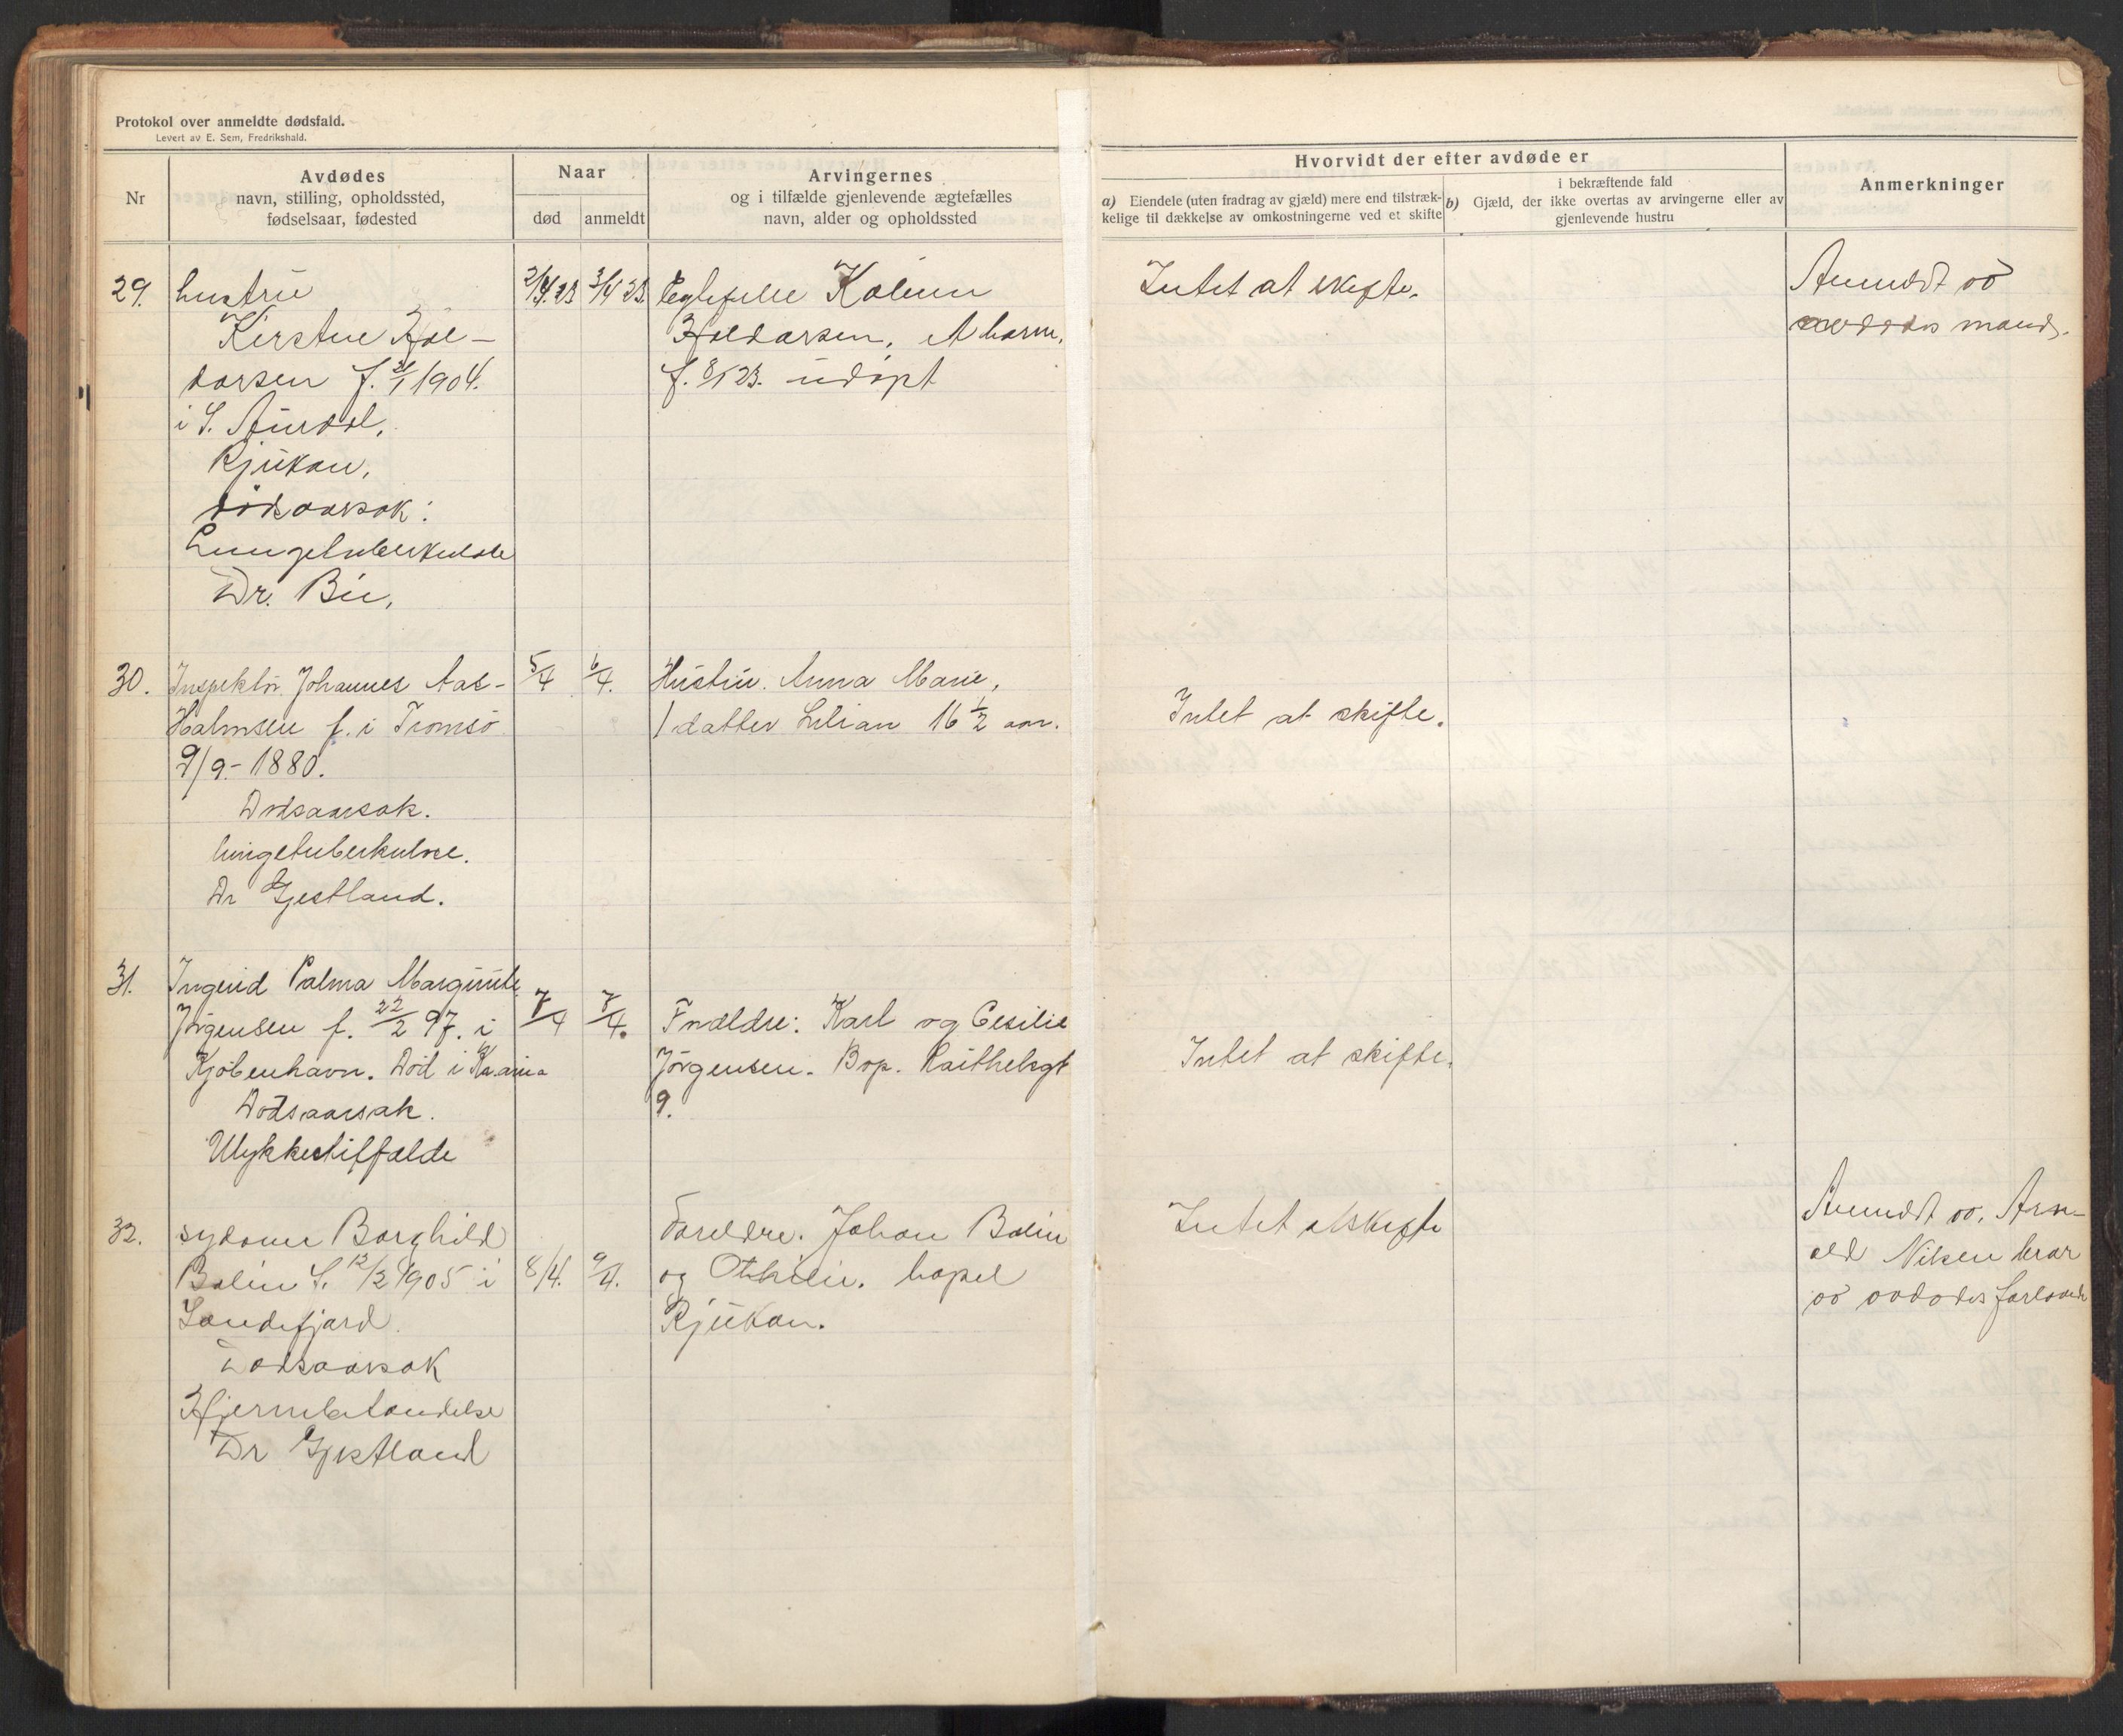 Protokol over anmeldte dødsfald.
Levert av E. Sem, Fredrikshald.
Nr
Avdødes
navn, stilling, opholdssted,
fødselsaar, fødested
Naar
død
anmeldt
Arvingernes
og i tilfælde gjenlevende ægtefælles
navn, alder og opholdssted
Hvorvidt der efter avdøde er
a) Eiendele (uten fradrag av gjæld) mere end tilstræk-
kelige til dækkelse av omkostningerne ved et skifte
i bekræftende fald
b) Gjæld, der ikke overtas av arvingerne eller av
gjenlevende hustru
Anmerkninger
29.
hustru
Kirsten Hal-
dorsen f. 21/1 1904.
i S. Aurdal,
Rjukan,
dødsaarsak:
Lungetuberkulose
Dr. Bie,
2/4 23
3/4 23.
Egtefelle
Haldorsen, et barn,
f. 8/1 23. udøpt
Intet at skifte.
Anmeldt av
avdødes mand.
30.
Inspektør Johannes Aas-
Halmsen f. i Tromsø
9/9.- 1880.
Dødsaarsak.
lungetuberkulose.
Dr Gjestland.
5/4
6/4.
Hustru. Anna Marie,
1 datter Lilian 16 1/2 aar.
Intet at skifte.
31.
Ingerid Palma Margrirete
Jørgensen f. 22/2 97. i
Kjøbenhavn. Død i Kr.ania
Dødsaarsak.
Ulykkestilfælde
7/4
7/4.
Forældre: Karl og Cesilie
Jørgensen. Bop.
9.
Intet at skifte.
32.
sydame Borghild
Bolin f. 12/2 1905 i
Sandefjord.
Dødsaarsak
Hjernebetændelse
Dr Gjestland
8/4.
9/4.
Foreldre. Johan Bolin
og bopel
Rjukan.
Intet at skifte
Anmeldt av. Arn-
old Nilsen bror
av avdødes forlovede